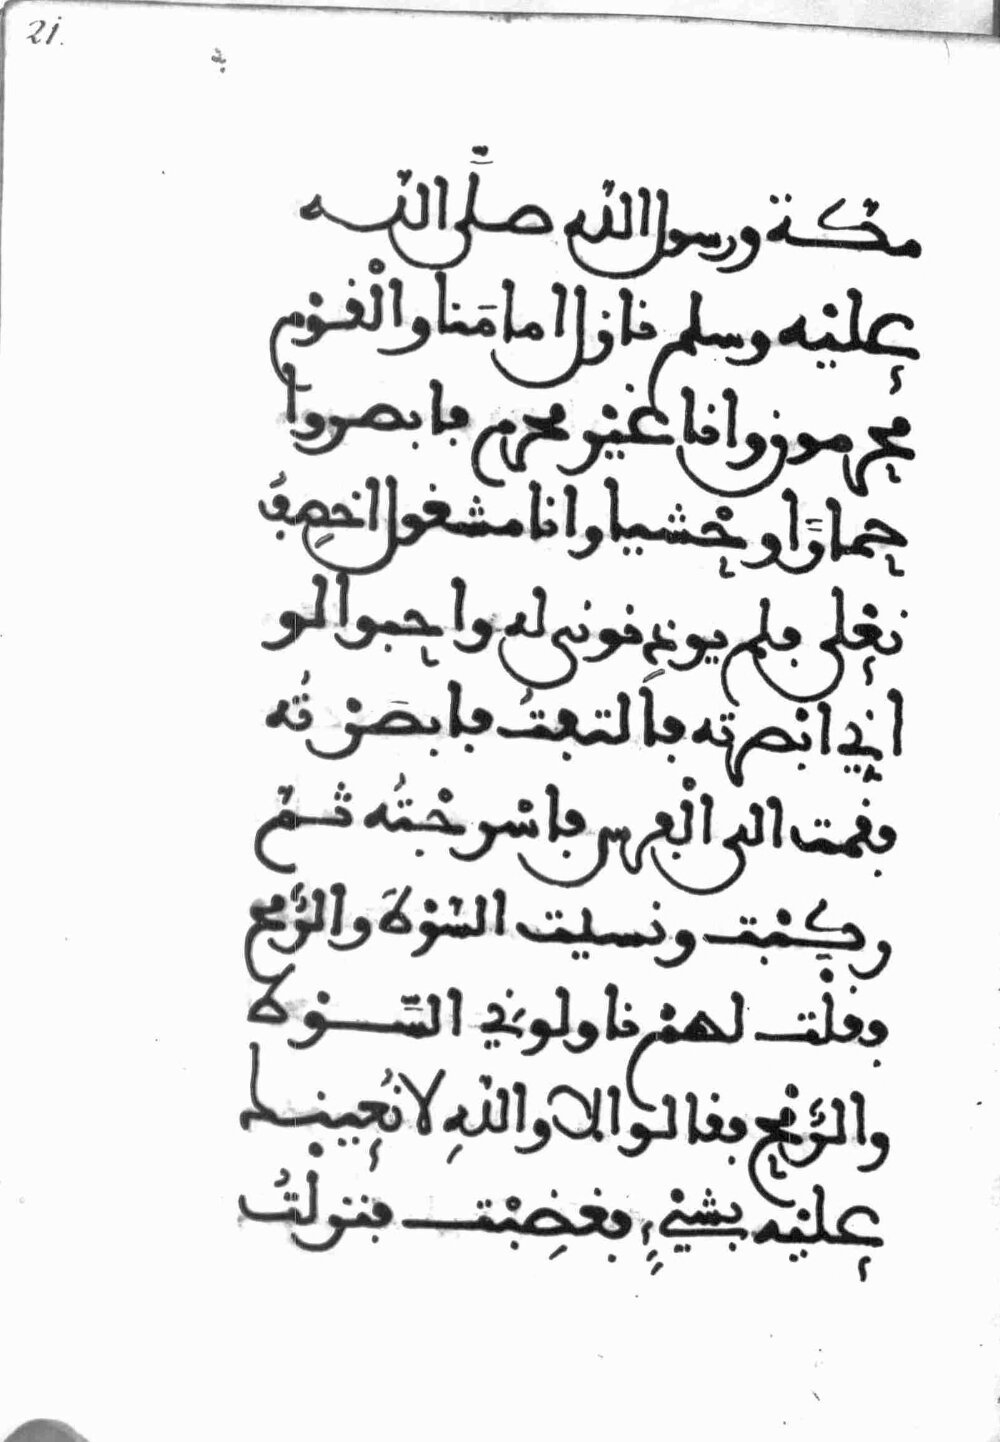 21.
مكة ورسول الله صلى الله
عليه وسلم نازل امامنا والقوم
محرمون وانا غير محرم فابصروا
حمارا وحشيا وانا مشغول اخصف
نعلي فلم يوذنوني له واحبوا لو
اني ابصرته فالتفت فابصرته
فقمت الى الفرس فاسرجته ثم
ركبت ونسيت السوط والرمح
فقلت لهم ناولوني السوط
والرمح فقالوا لا والله لا نعينك
عليه بشيء فغضبت فنزلت